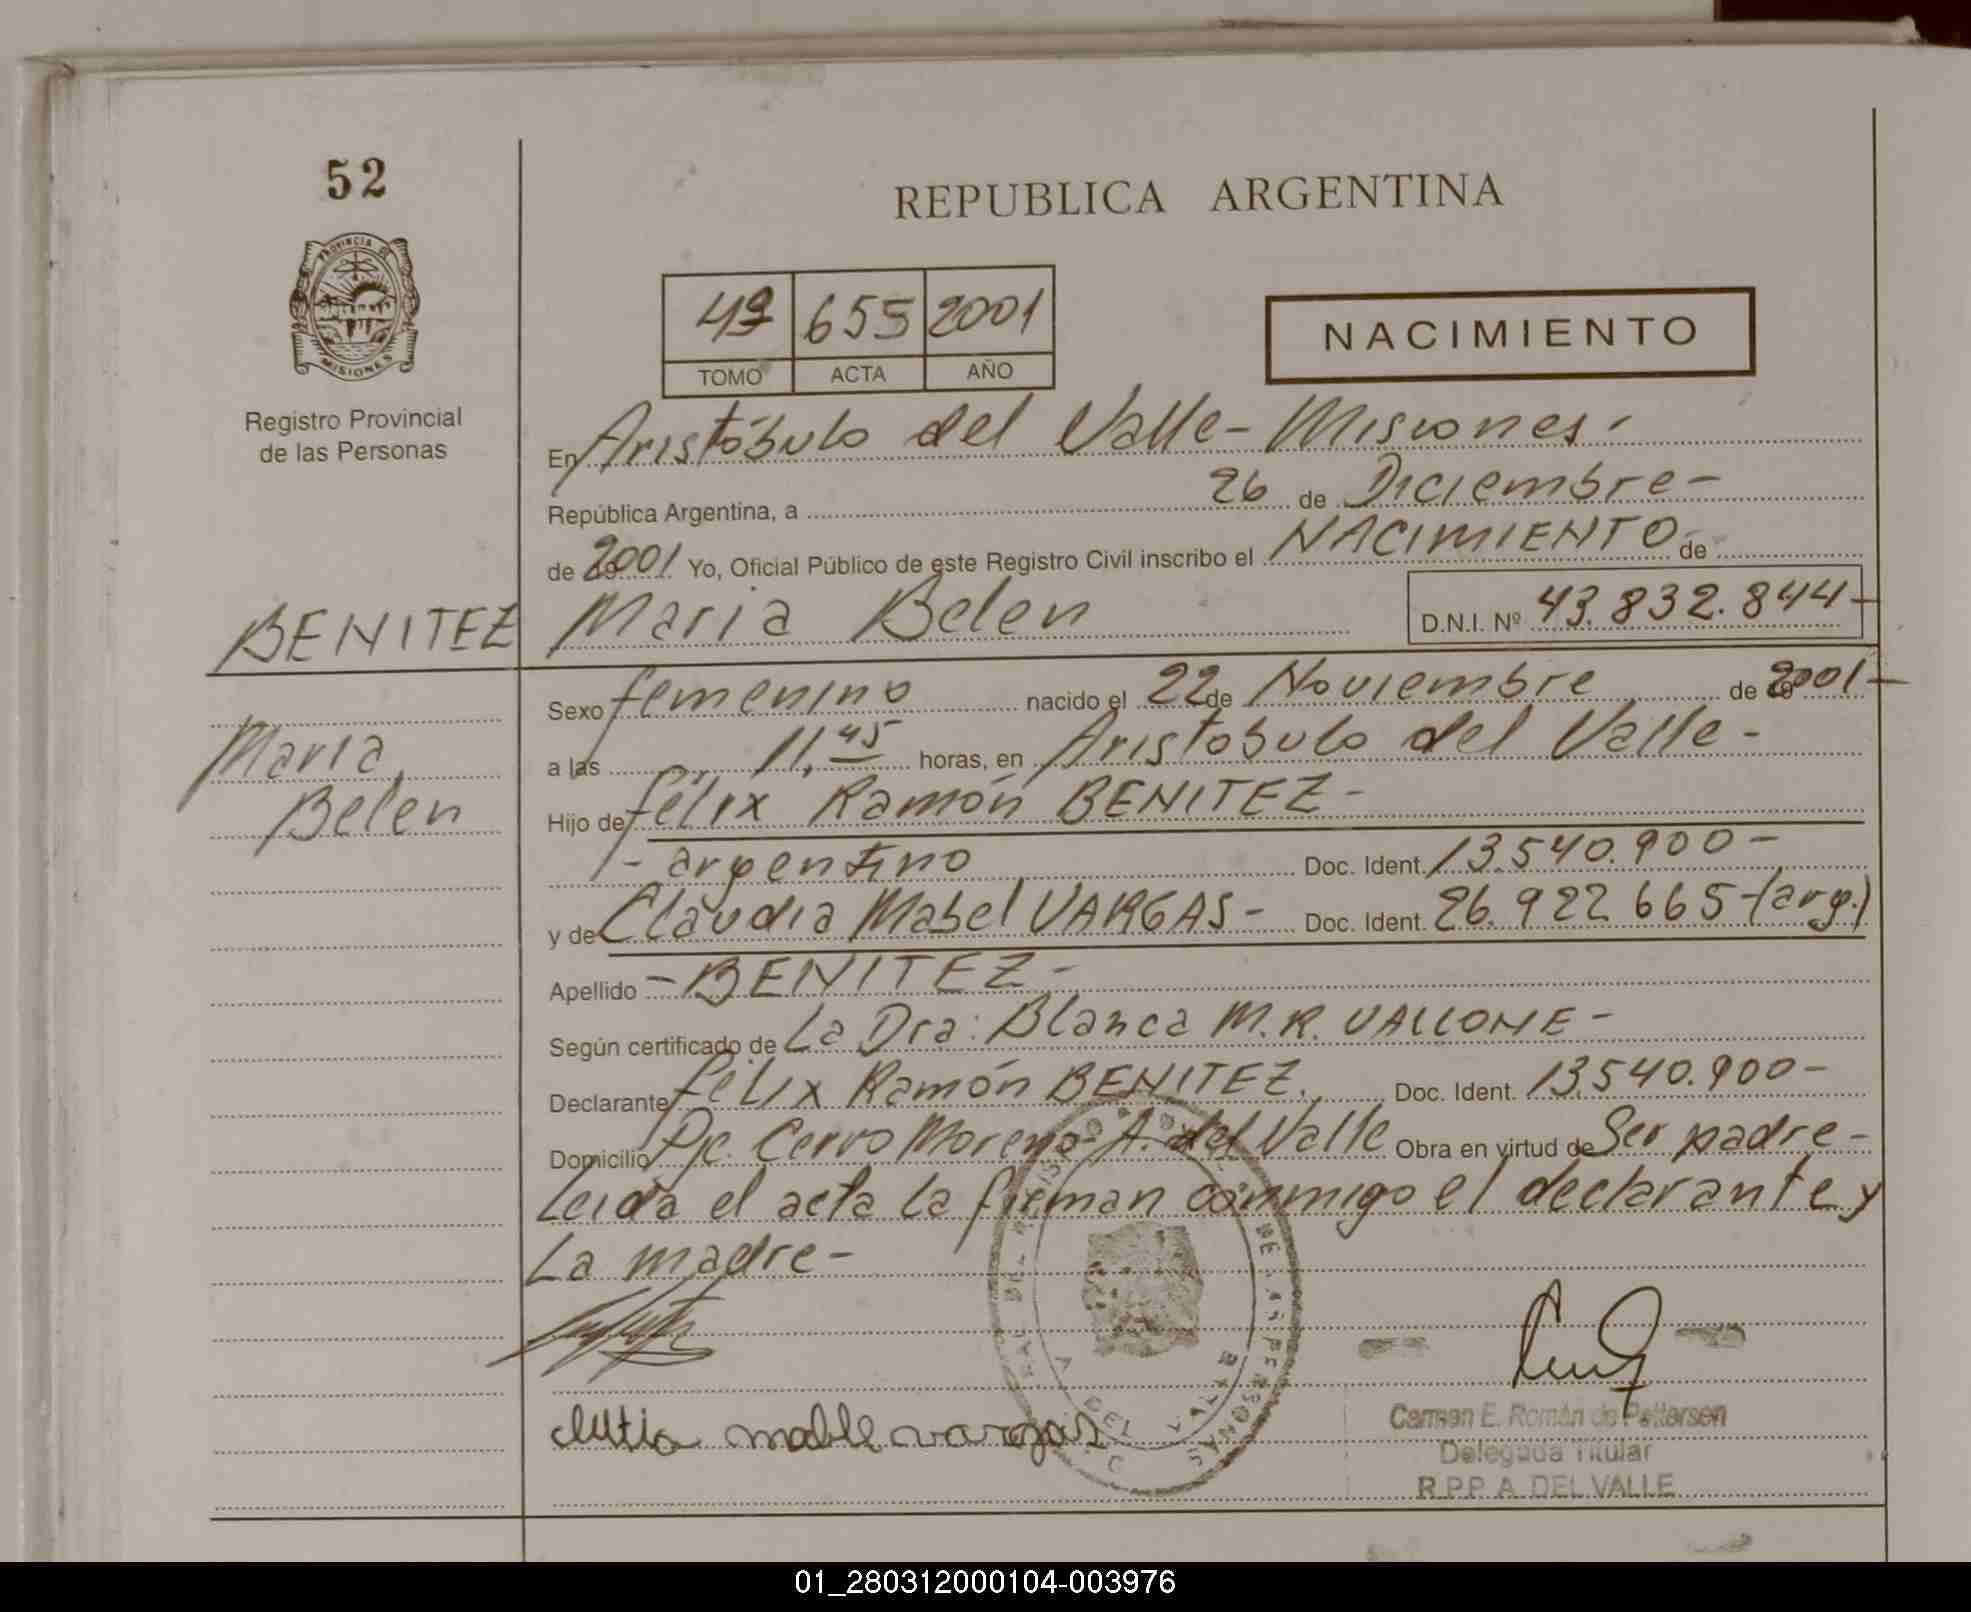 52
REPUBLICA ARGENTINA
PROVINCIA DE
MISIONES
Registro Provincial
de las Personas
49 655 2001
TOMO ACTA AÑO
NACIMIENTO
En Aristóbulo del Valle - Misiones.
República Argentina, a 26 de Diciembre -
de 2001 Yo, Oficial Público de este Registro Civil inscribo el NACIMIENTO de
BENITEZ Maria Belen D.N.I. Nº 43.832.844 -
Sexo femenino nacido el 22 de Noviembre de 2001 -
Maria a las 11,45 horas, en Aristobulo del Valle -
Belen Hijo de Félix Ramón BENITEZ -
- argentino Doc. Ident. 13.540.900 -
y de Claudia Mabel VARGAS - Doc. Ident. 26.922.665 - (arg.)
Apellido - BENITEZ -
Según certificado de La Dra: Blanca M.R. VALLONE -
Declarante Félix Ramón BENITEZ. Doc. Ident. 13.540.900 -
Domicilio Pje. Cerro Moreno - A. del Valle Obra en virtud de Ser padre -
Leida el acta la firman conmigo el declarante y
La madre -
vargas
Carmen E. Román de Pettersen
Delegada Titular
R.P.P. A. DEL VALLE
01_280312000104-003976